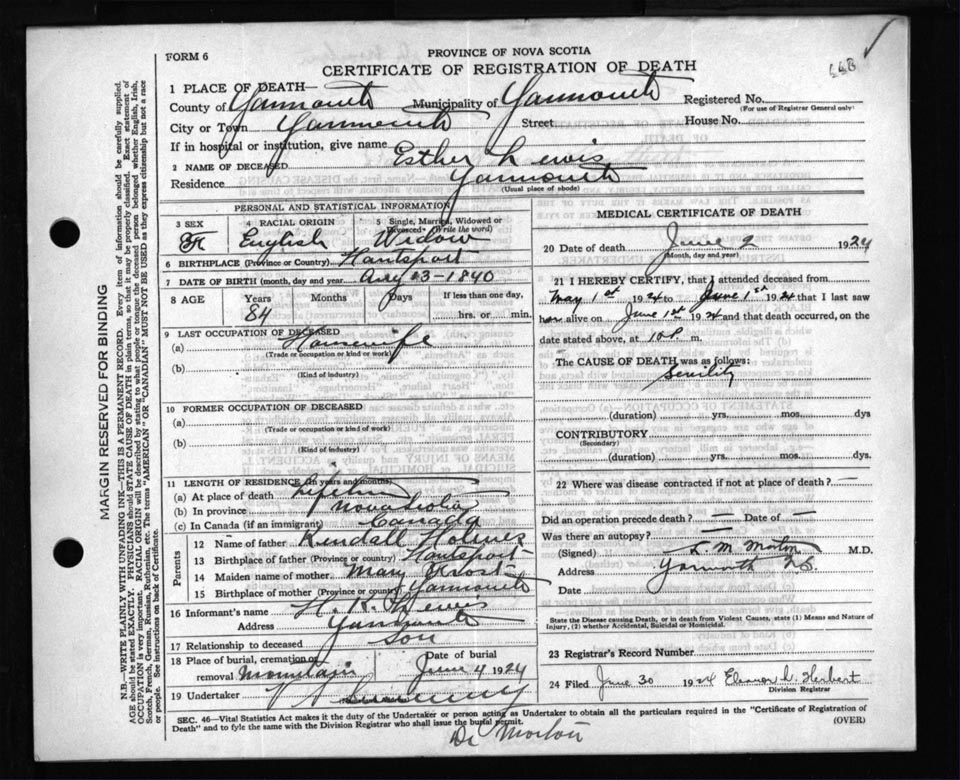 668
FORM 6
PROVINCE OF NOVA SCOTIA
CERTIFICATE OF REGISTRATION OF DEATH
1 PLACE OF DEATH—
County of Yarmouth Municipality of Yarmouth Registered No.
(For use of Registrar General only)
City or Town Yarmouth Street House No.
If in hospital or institution, give name
2 NAME OF DECEASED Esther Lewis
Residence Yarmouth
(Usual place of abode)
PERSONAL AND STATISTICAL INFORMATION
3 SEX F 4 RACIAL ORIGIN English 5 Single, Married, Widowed or Divorced (Write the word) Widow
6 BIRTHPLACE (Province or Country) Hantsport
7 DATE OF BIRTH (month, day and year) 23-1840
8 AGE Years 84 Months Days If less than one day, hrs. or min.
9 LAST OCCUPATION OF DECEASED
(a) Housewife
(Trade or occupation or kind or work)
(b)
(Kind of industry)
10 FORMER OCCUPATION OF DECEASED
(a)
(Trade or occupation or kind or work)
(b)
(Kind of industry)
11 LENGTH OF RESIDENCE (In years and months)
(a) At place of death Lifetime
(b) In province Nova Scotia
(c) In Canada (if an immigrant) Canada
Parents
12 Name of father Kendall Holmes
13 Birthplace of father (Province or country) Hantsport
14 Maiden name of mother Mary
15 Birthplace of mother (Province or country) Yarmouth
16 Informant's name H. K. Lewis
Address Yarmouth
17 Relationship to deceased Son
18 Place of burial, cremation or removal Mountain Date of burial June 4 1924
19 Undertaker V
MEDICAL CERTIFICATE OF DEATH
20 Date of death June 2 1924
(Month, day and year)
21 I HEREBY CERTIFY, that I attended deceased from
May 1st 1924 to June 1st 1924 that I last saw
her alive on June 1st 1924 and that death occurred, on the
date stated above, at 10 P. m.
The CAUSE OF DEATH was as follows:
Senility
(duration) yrs. mos. dys
CONTRIBUTORY
(Secondary)
(duration) yrs. mos. dys.
22 Where was disease contracted if not at place of death? —
Did an operation precede death? — Date of —
Was there an autopsy? —
(Signed) L. M. Morton M.D.
Address Yarmouth N.S.
Date
State the Disease causing Death, or in death from Violent Causes, state (1) Means and Nature of
Injury, (2) whether Accidental, Suicidal or Homicidal.
23 Registrar's Record Number
24 Filed June 30 1924 Eleanor L. Herbert
Division Registrar
SEC. 46—Vital Statistics Act makes it the duty of the Undertaker or person acting as Undertaker to obtain all the particulars required in the "Certificate of Registration of
Death" and to fyle the same with the Division Registrar who shall issue the burial permit.
(OVER)
Dr Morton
MARGIN RESERVED FOR BINDING
N.B.—WRITE PLAINLY WITH UNFADING INK—THIS IS A PERMANENT RECORD. Every item of information should be carefully supplied.
AGE should be stated EXACTLY. PHYSICIANS should STATE CAUSE OF DEATH in plain terms, so that it may be properly classified. Exact statement of
OCCUPATION is very important. RACIAL ORIGIN will be described by stating to what people or tongue the deceased person belonged whether English, Irish,
Scotch, French, German, Russian, Ruthenian, etc. The terms "AMERICAN" OR "CANADIAN" MUST NOT BE USED as they express citizenship but not a race
or people. See instructions on back of Certificate.